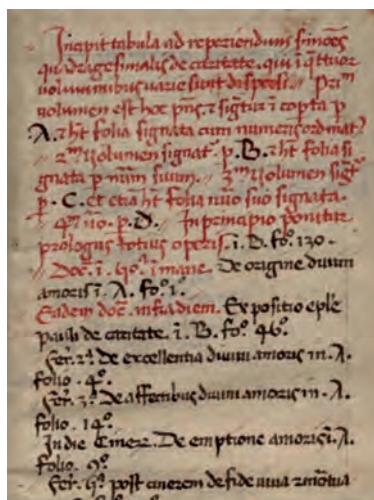 Incipit tabula ad reperiendum s̃mões
quadragesimalis de caritate. qui ĩ q̃ttuor
uoluminibus uarie sunt dispositi. // Priᵐ
uolumen est hoc pñs. ⁊ sig̃tur ĩ cop̃ta p
.A. ⁊ h̃t folia signata cum numeris ordinat̃
// 2ᵐ Uolumen signat̃. p. B. ⁊ h̃t folia si
gnata p nũm suum. // 3ᵐ Uolumen sig̃t̃
p. C. et etiã h̃t folia nũo suo signata.
// 4ᵐ ũo. p. D. // In principio ponitur
prologus totius operis. ĩ. D. fo͂. 130.
// Doc̃. ĩ. lˣᵃ. ĩ mane. De origine diuini
amoris ĩ. A. fo͂. 1.
Eadem doc̃. infra diem. Expositio ep̃le
pauli de caritate. ĩ. B. fo͂. 46.
Fer. 2ᵃ. De excellentia diuini amoris in. A.
folio. 4°.
Fer. 3ᵃ. De affectibus diuini amoris in. A.
folio. 14°.
In die Cinerũ. De emptione amoris ĩ. A.
folio. 9°.
Fer. 5ᵃ. post cinerem de fide uiua